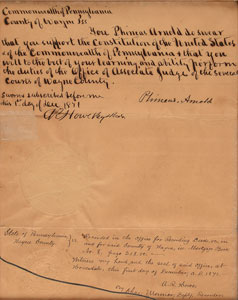 Commonwealth of Pennsylvania
County of Wayne ss
You Phineas Arnold do swear
that you support the Constitution of the United States
of the Commonwealth of Pennsylvania & that you
will to the best of your learning and ability perform
the duties of the Office of Associate Judge of the several
Courts of Wayne County.
Sworn & subscribed before me
this 1st day of Dec 1871
Phineas Arnold
State of Pennsylvania
Wayne County ss
Recorded in the office for Recording Deeds &c. in
and for said County of Wayne, in Mortgage Book
No. page
Witness my hand and the seal of said office, at
Honesdale, this first day of December, A.D. 1871.
A. R. Howe
Deputy Recorder